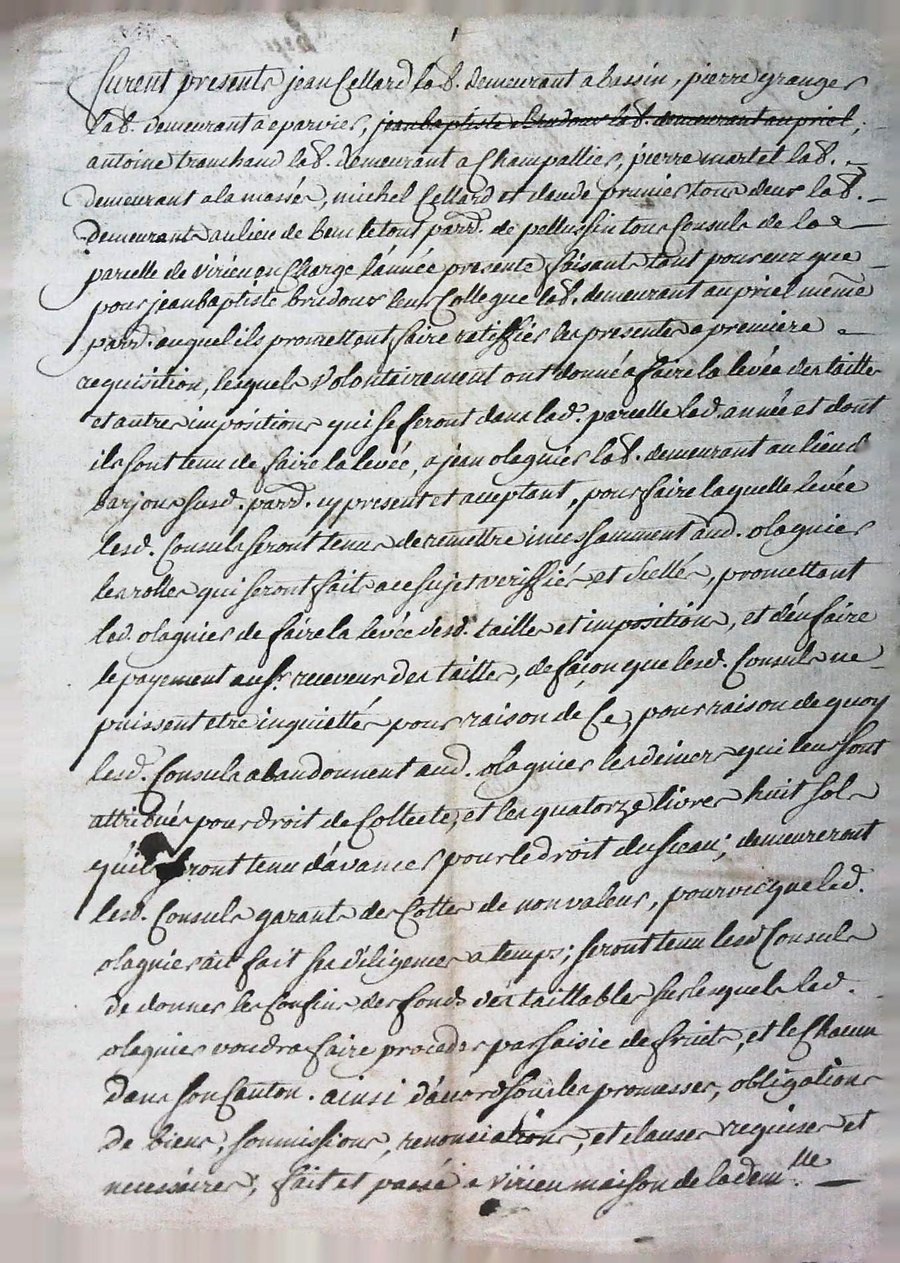 furent presents jean Cellard lab. demeurant a bassin, pierre granger
lab. demeurant a eparvier, jean baptiste brudour lab. demeurant au priel,
antoine tranchand lab. demeurant a Champallier, pierre martel lab.
demeurant a la massée, michel Cellard et claude prunier tous deux lab.
demeurants au lieu de le tout parr. de pellussin tous Consuls de la
parcelle de virieu en Charge l'année presente faisants tant pour eux que
pour jean baptiste brudour leur Collegue lab. demeurant au priel même
parr. auquel ils promettent faire ratiffier les presentes a premiere
requisition, lesquels volontairement ont donné a faire la levée des tailles
et autres impositions qui se feront dans lad. parcelle lad. année et dont
ils sont tenu de faire la levée, a jean olagnier lab. demeurant au lieu de
barjon susd. parr. cy present et acceptant, pour faire laquelle levée
lesd. Consuls seront tenus de remettre incessamment aud. olagnier
les rolles qui seront fait a ce sujet veriffiés et scellés, promettant
led. olagnier de faire la levée desd. tailles et impositions, et d'en faire
le payement au sr. receveur des tailles, de façon que lesd. Consuls ne
puissent etre inquiettés pour raison de Ce, pour raison de quoy
lesd. Consuls abandonnent aud. olagnier les deniers qui leur sont
attribués pour droit de Collecte, et les quatorze livres huit sols
qu'il seront tenu d'avancer pour le droit du sceau; demeureront
lesd. Consuls garants des Cottes de non valeur, pourvu que led.
olagnier ait fait ses diligences a temps; seront tenu lesd Consuls
de donner les Confins des fonds des taillables sur lesquels led.
olagnier voudra faire proceder par saisie de fruits, et le Chacun
dans son Canton. ainsi d'accord sous les promesses, obligations
de biens, soumissions, renonciations, et clauses requises et
necessaires; fait et passé a virieu maison de la demlle